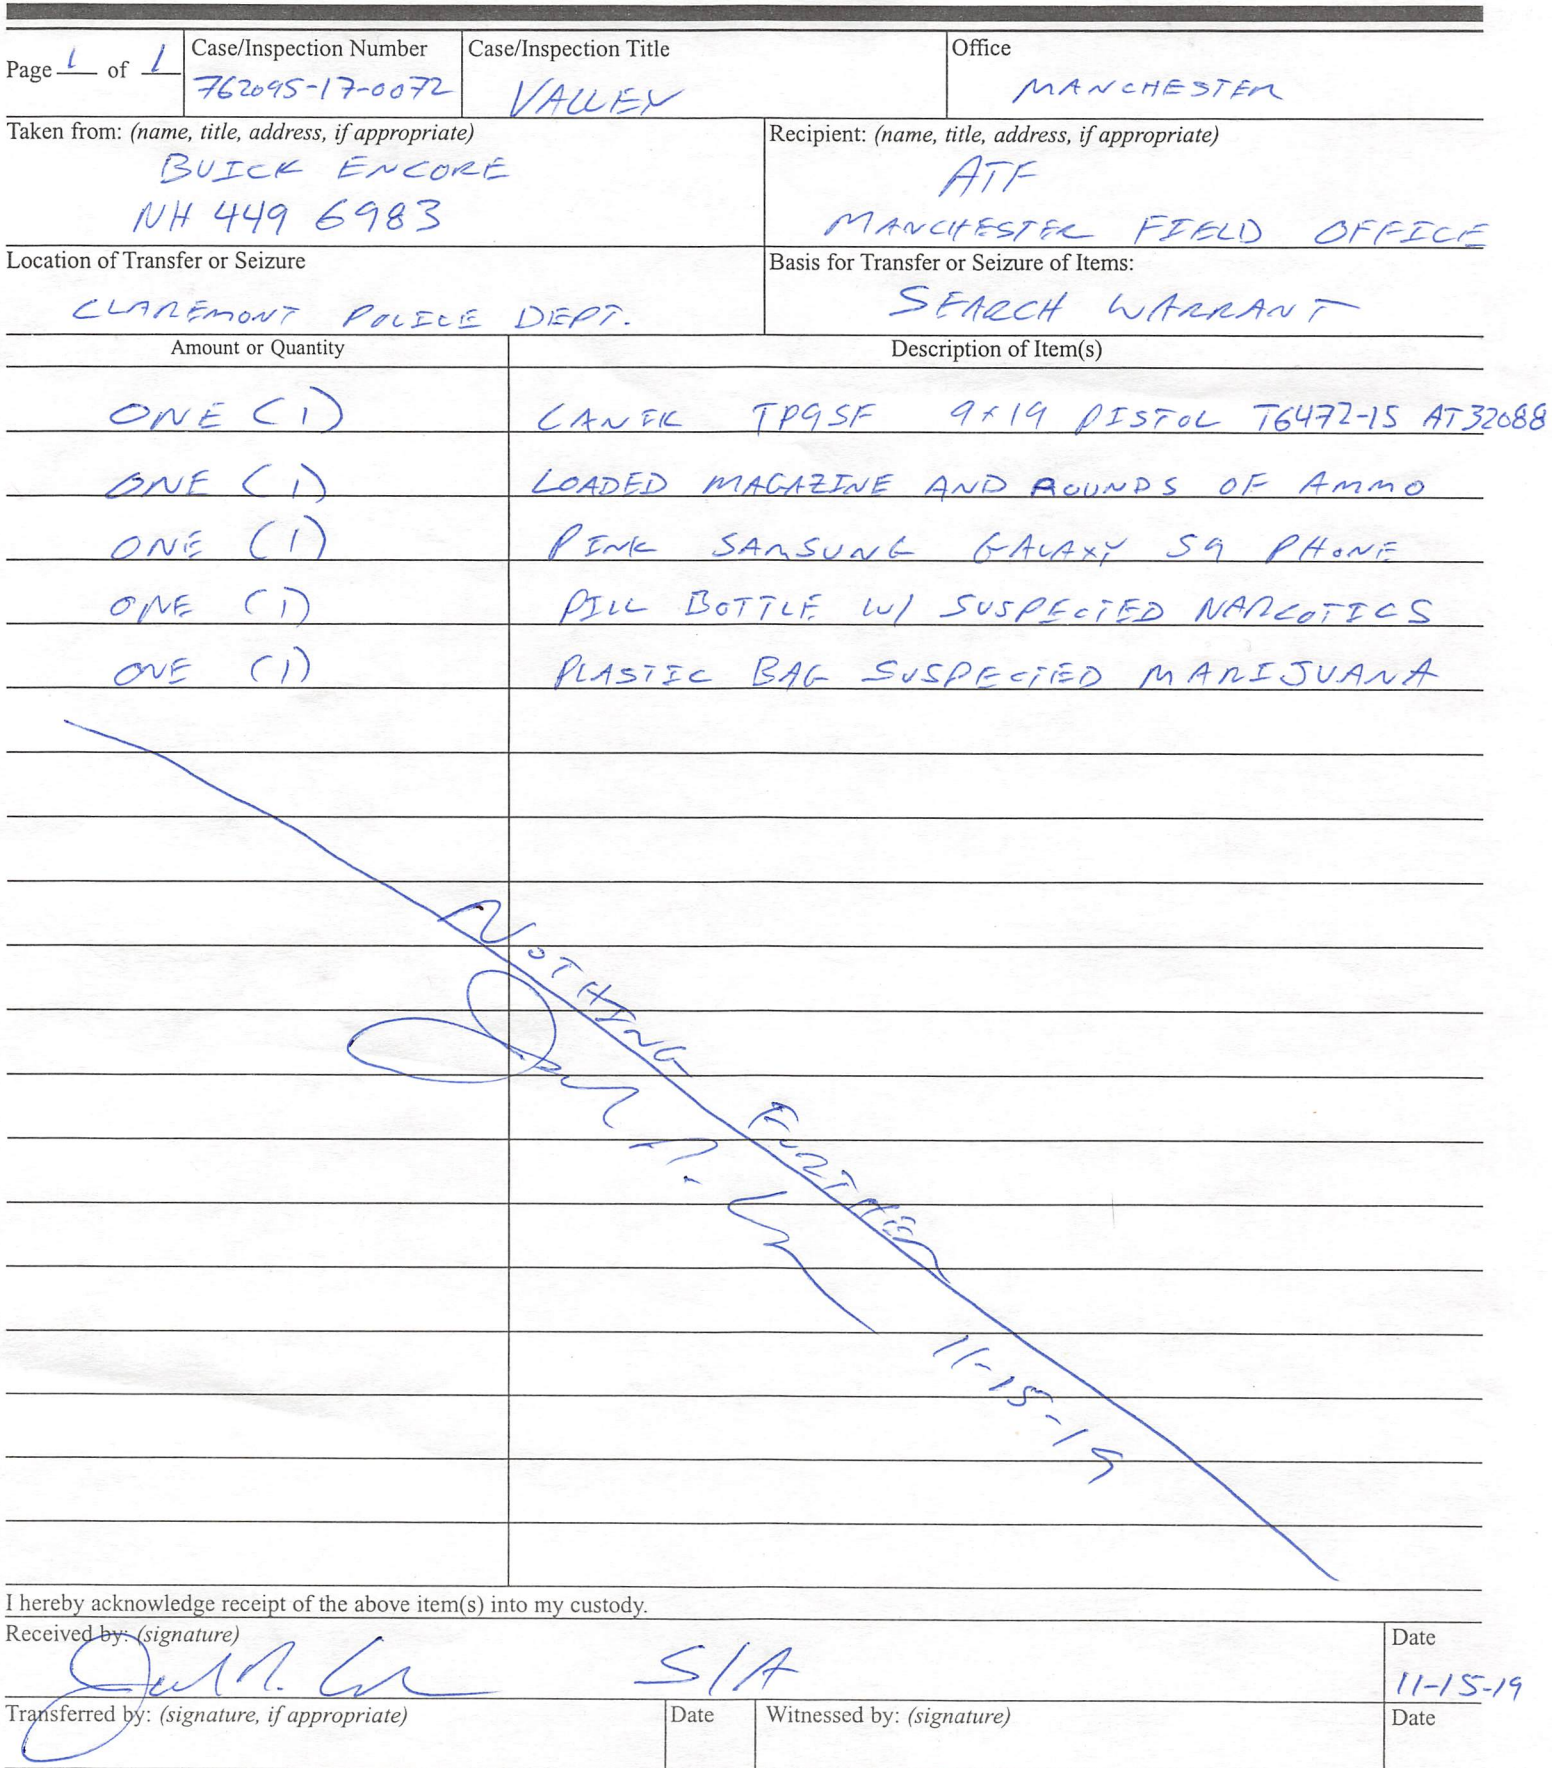 Page 1 of 1
Case/Inspection Number
762095-17-0072
Case/Inspection Title
VALLEY
Office
MANCHESTER
Taken from: (name, title, address, if appropriate)
BUICK ENCORE
NH 449 6983
Recipient: (name, title, address, if appropriate)
ATF
MANCHESTER FIELD OFFICE
Location of Transfer or Seizure
CLAREMONT POLICE DEPT.
Basis for Transfer or Seizure of Items:
SEARCH WARRANT
Amount or Quantity Description of Item(s)
ONE (1) CANIK TP9SF 9x19 PISTOL T6472-15 AT32088
ONE (1) LOADED MAGAZINE AND ROUNDS OF AMMO
ONE (1) PINK SAMSUNG GALAXY S9 PHONE
ONE (1) PILL BOTTLE W/ SUSPECTED NARCOTICS
ONE (1) PLASTIC BAG SUSPECTED MARIJUANA
NOTHING FURTHER
11-15-19
I hereby acknowledge receipt of the above item(s) into my custody.
Received by: (signature)
S/A
Date
11-15-19
Transferred by: (signature, if appropriate)
Date
Witnessed by: (signature)
Date